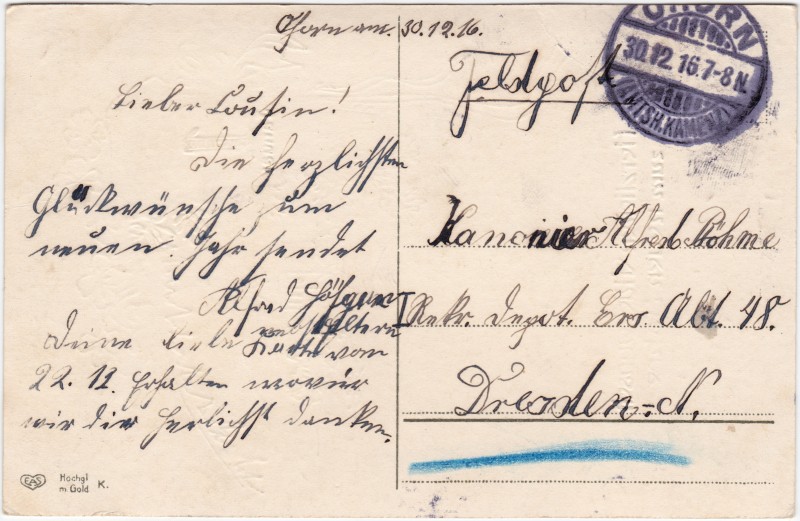 Ohorn am. 30.12.16.
Lieber Cousin!
Die herzlichsten
Glückwünsche zum
neuen Jahr sendet
Alfred
Deine liebe Karte vom
22.12. erhalten wovür
wir dir herlichst danken.
EAS
Hochgl
m. Gold K.
OHORN
30.12.16.7-8N.
(AMTSH.KAMENZ)
Feldpost
Kanonier Alfred Böhme
I Rekr. Depot. Ers Abt. 48.
Dresden-N.